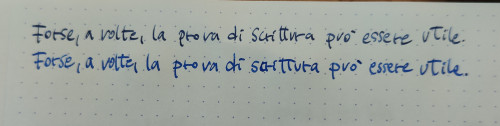 Forse, a volte, la prova di scrittura può essere utile.
Forse, a volte, la prova di scrittura può essere utile.